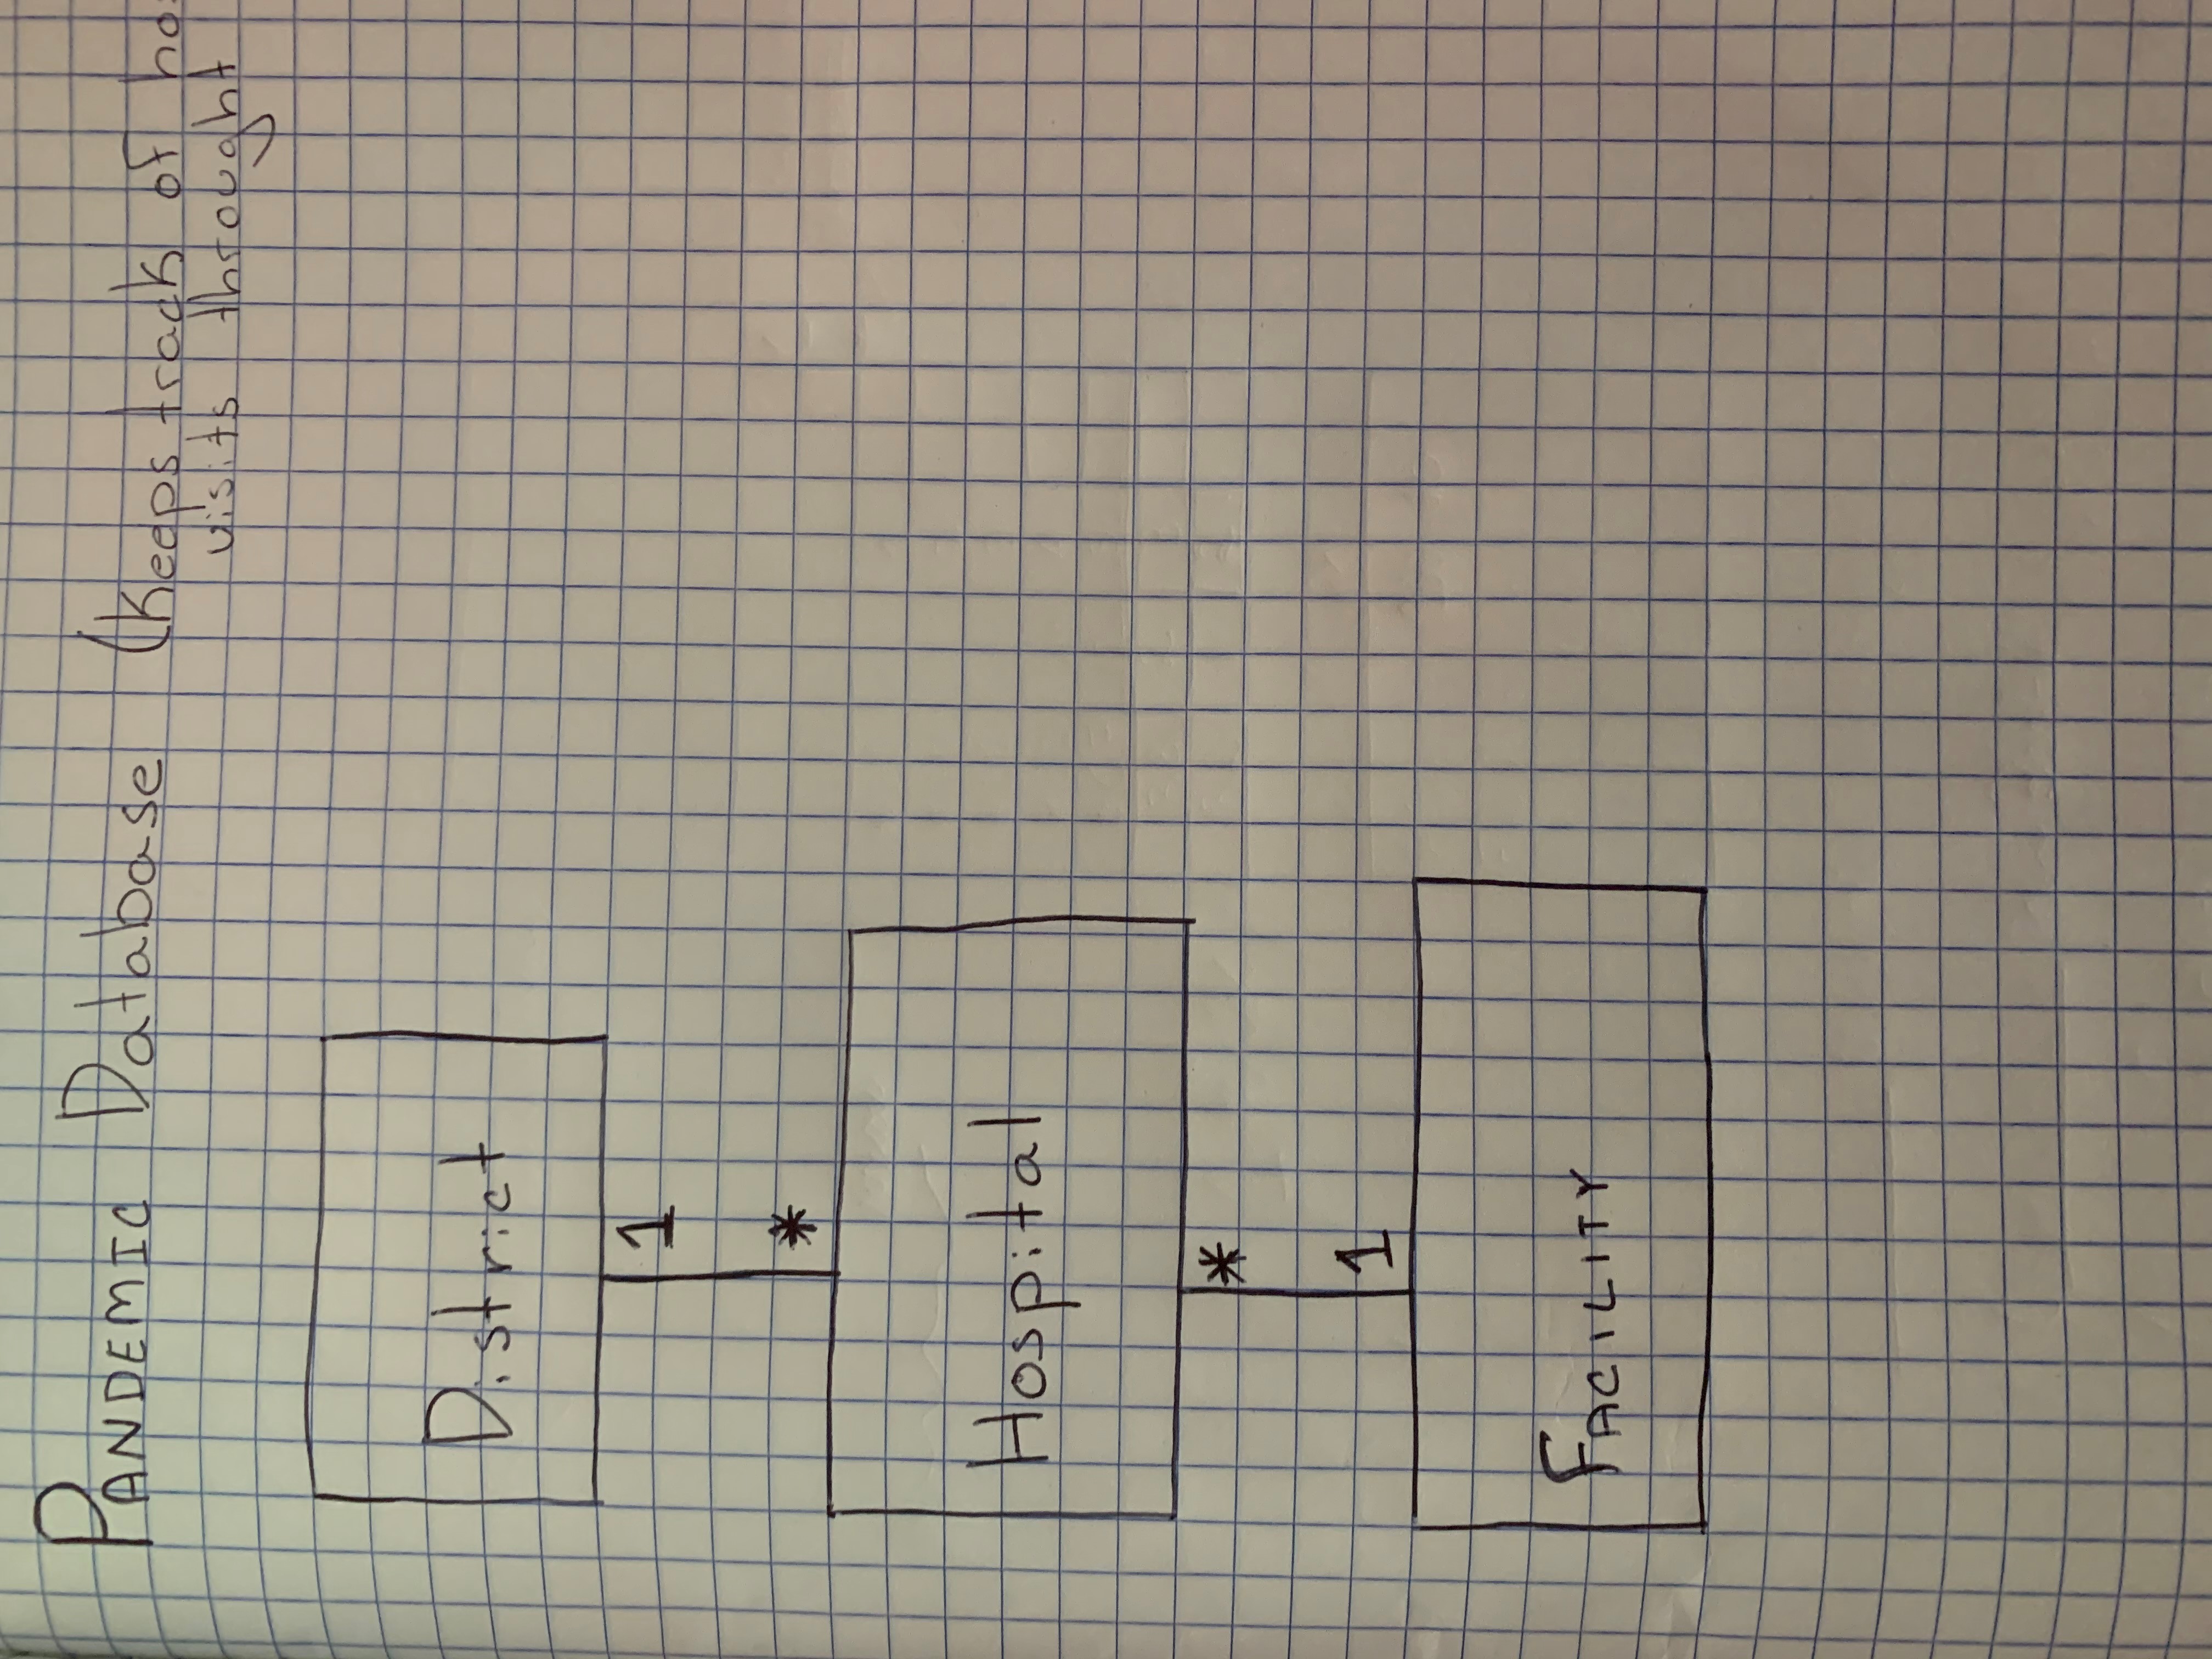 PANDEMIC Database (Keeps track of
visits throught
District
1
*
Hospital
*
1
FACILITY